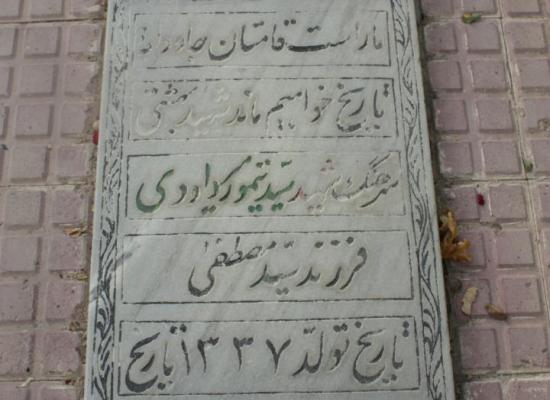 ما راست قامتان جاودانه
تاریخ خواهیم ماند شهید بهشتی
سرهنگ شهید سید تیمور داودی
فرزند سید مصطفی
تاریخ تولد ۱۳۳۷ تاریخ